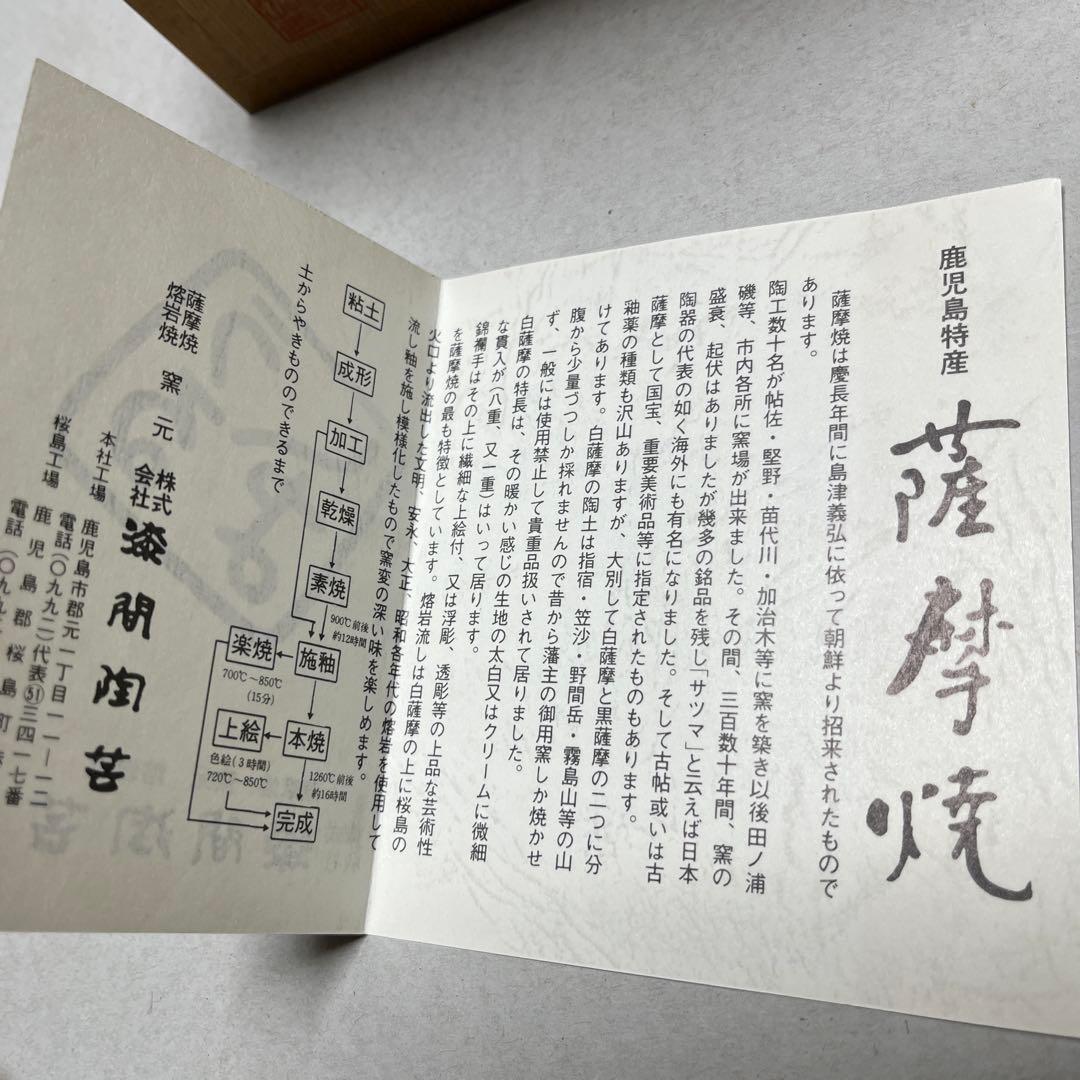 鹿児島特産
薩摩焼
薩摩焼は慶長年間に島津義弘に依って朝鮮より招来されたもので
あります。
陶工数十名が帖佐・堅野・苗代川・加治木等に窯を築き以後田ノ浦
磯等、市内各所に窯場が出来ました。その間、三百数十年間、窯の
盛衰、起伏はありましたが幾多の銘品を残し「サツマ」と云えば日本
陶器の代表の如く海外にも有名になりました。そして古帖或いは古
薩摩として国宝、重要美術品等に指定されたものもあります。
釉薬の種類も沢山ありますが、大別して白薩摩と黒薩摩の二つに分
けてあります。白薩摩の陶土は指宿・笠沙・野間岳・霧島山等の山
腹から少量づつしか採れませんので昔から藩主の御用窯しか焼かせ
ず、一般には使用禁止して貴重品扱いされて居りました。
白薩摩の特長は、その暖かい感じの生地の太白又はクリームに微細
な貫入が(八重、又一重)はいって居ります。
錦襴手はその上に繊細な上絵付、又は浮彫、透彫等の上品な芸術性
を薩摩焼の最も特徴としています。熔岩流しは白薩摩の上に桜島の
火口より流出した文明、安永、大正、昭和各年代の熔岩を使用して
流し釉を施し模様化したもので窯変の深い味を楽しめます。
土からやきもののできるまで
粘土
成形
加工
乾燥
素焼
900℃前後
約12時間
施釉
楽焼
700℃〜850℃
(15分)
本焼
1260℃前後
約16時間
上絵
色絵(3時間)
720℃〜850℃
完成
薩摩焼
熔岩焼
窯元
株式
会社
漆間陶苦
本社工場
鹿児島市郡元一丁目一一—一二
電話(〇九九二)代表(51)三四一七番
桜島工場
鹿児島郡桜島町
電話(〇九九